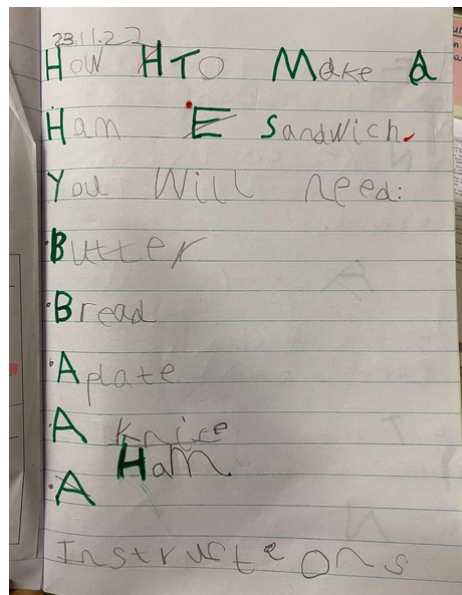 23.11.22
How HTO Make a
Ham E Sandwich.
You Will need:
·Butter
·Bread
·A plate
·A knice
Ham
·A
Instructeons